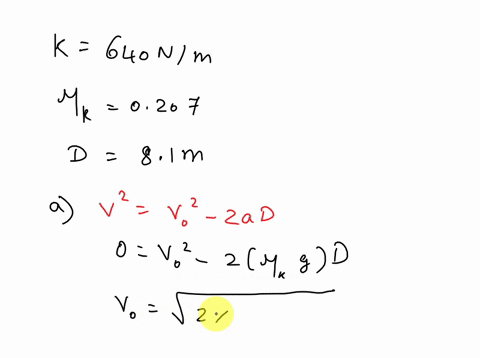 k = 640 N/m
μk = 0.207
D = 8.1m
a) v² = v₀² - 2aD
0 = v₀² - 2(μk g)D
v₀ = √2×